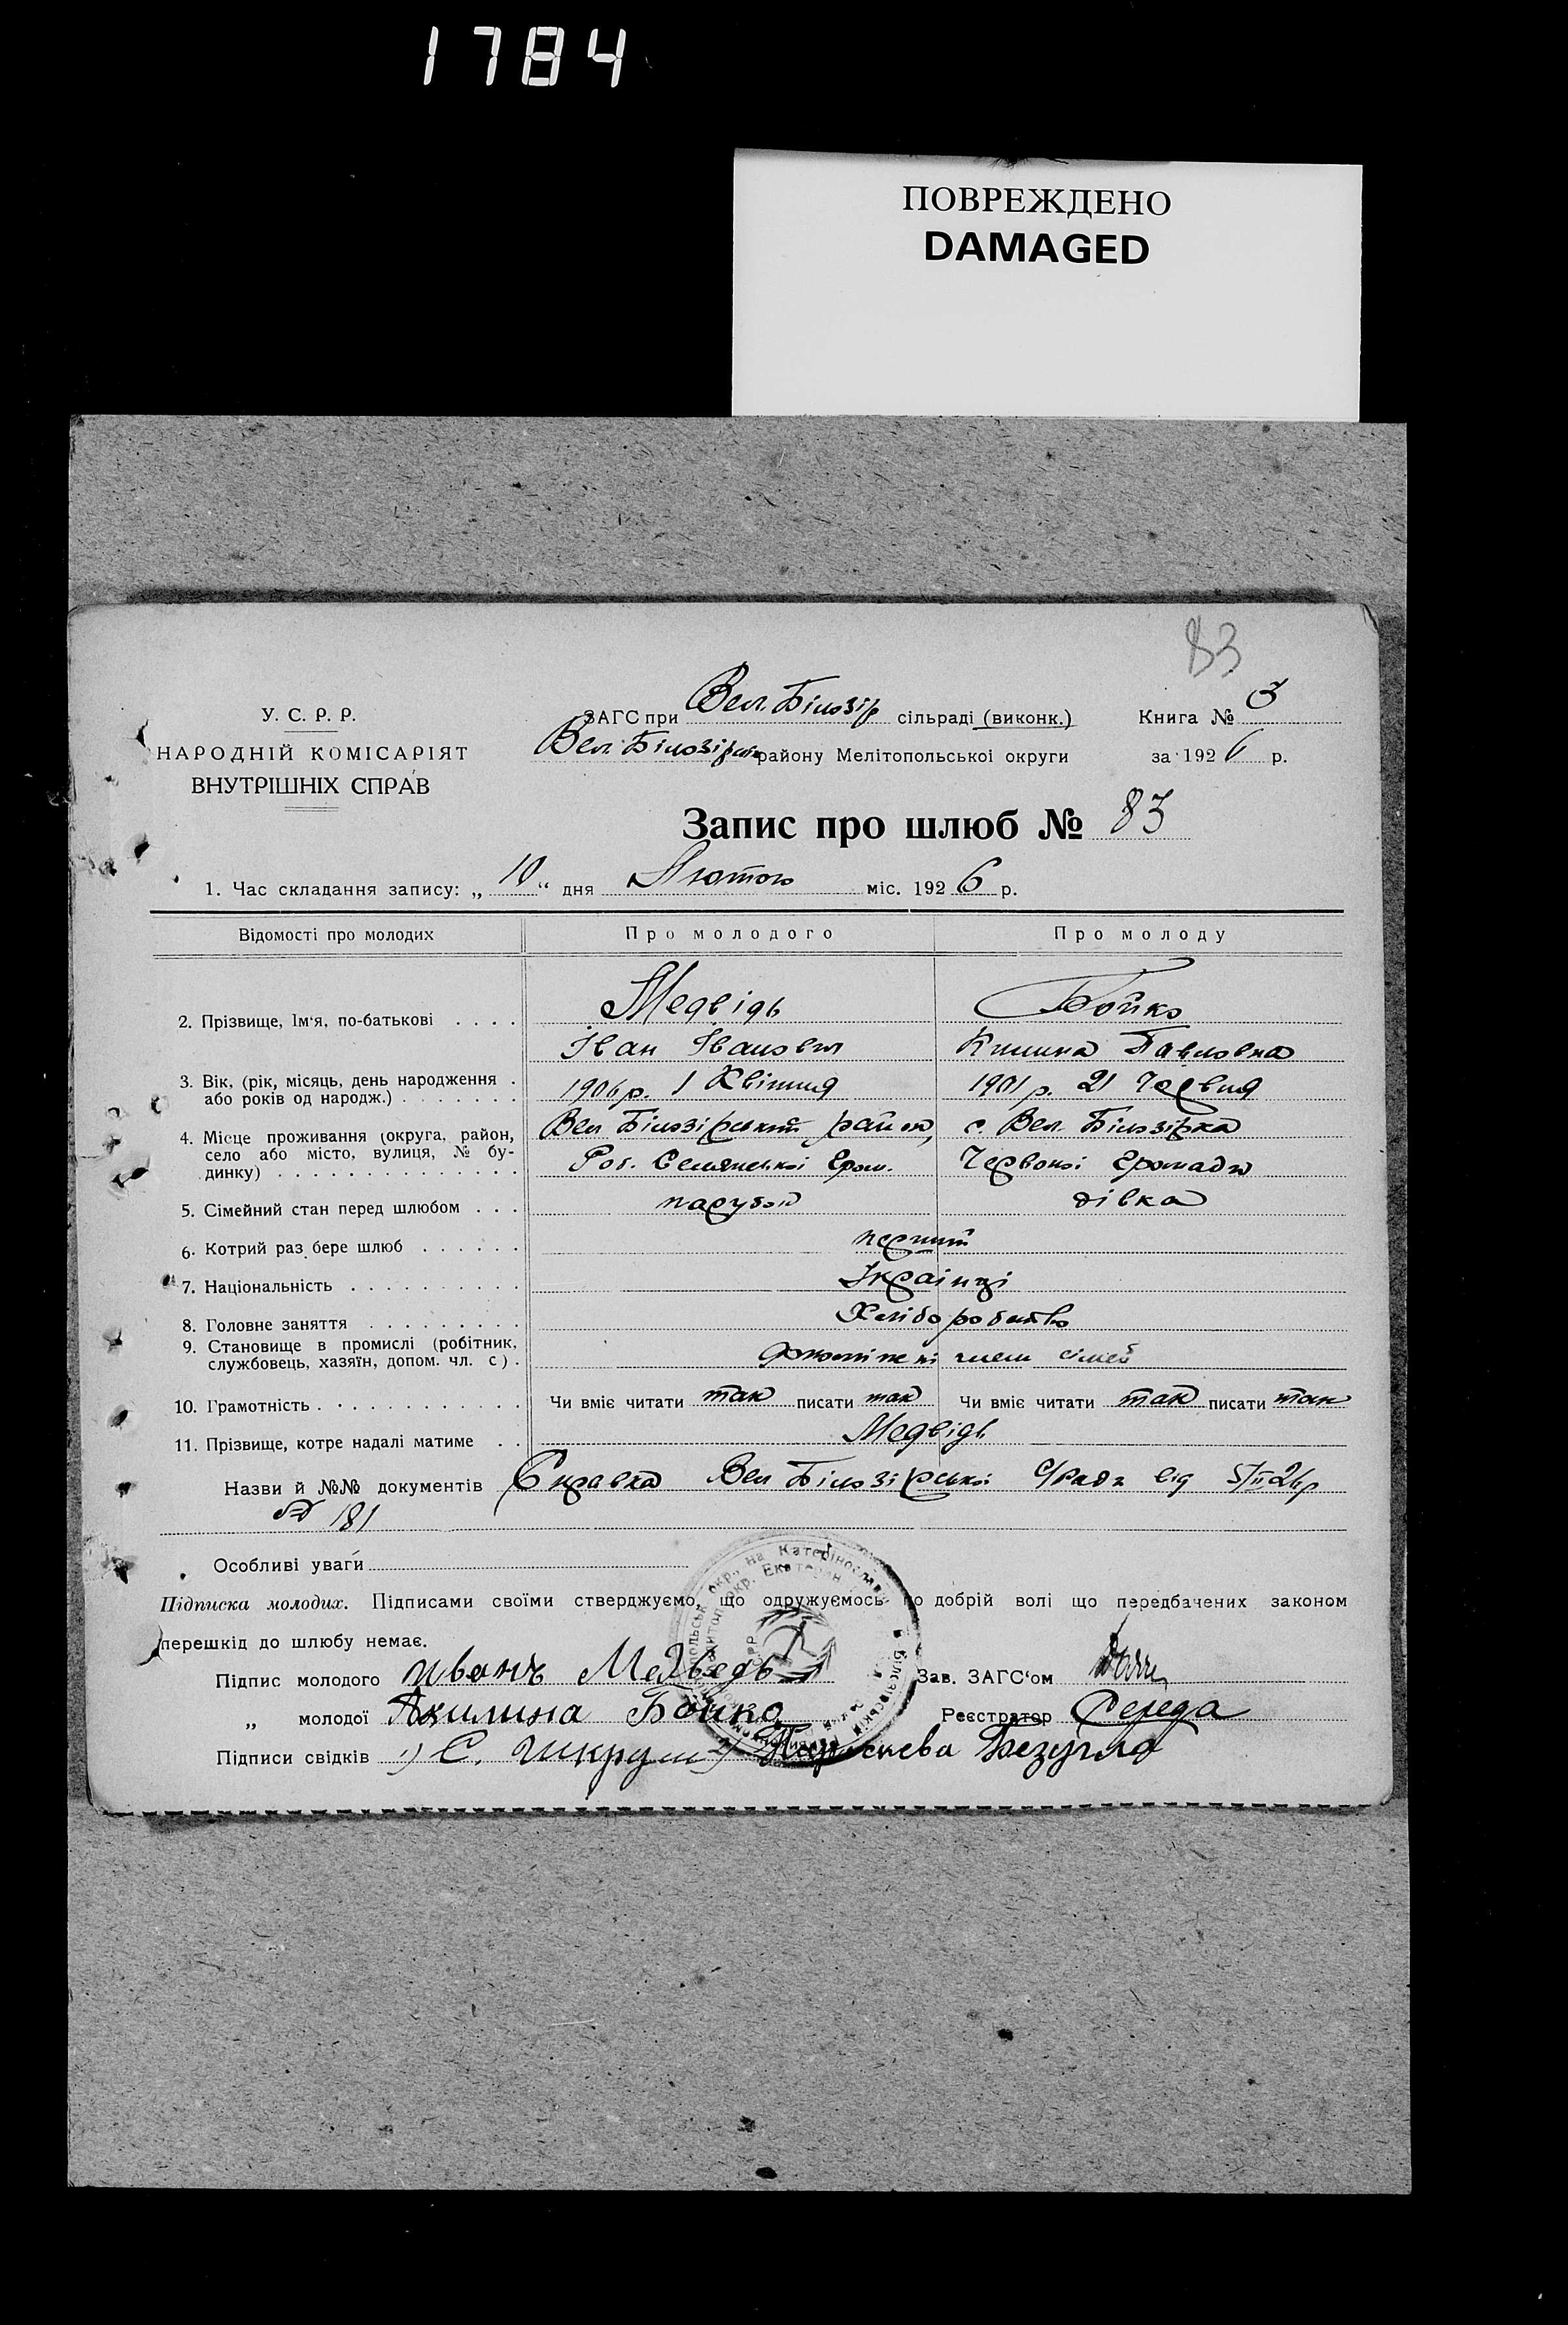 1784
ПОВРЕЖДЕНО
DAMAGED
83
У. С. Р. Р.
НАРОДНІЙ КОМІСАРІЯТ
ВНУТРІШНІХ СПРАВ
ЗАГС при Вел. Білозір сільраді (виконк.)
Вел. Білозірськ району Мелітопольськоі округи
Книга № 3
за 1926 р.
Запис про шлюб № 83
1. Час складання запису: „ 10 “ дня Лютого міс. 1926 р.
Відомості про молодих Про молодого Про молоду
2. Прізвище, Ім‘я, по-батькові . . . . Медвідь Бойко
Іван Іванович Килина Павловна
3. Вік, (рік, місяць, день народження .
або років од народж.) . . . . . . . 1906 р. 1 Квітня 1901 р. 21 Червня
4. Місце проживання (округа, район,
село або місто, вулиця, № бу-
динку) . . . . . . . . . . . . . .
Вел Білозірський район, с. Вел. Білозірка
Роб. Селянської Гром. Червоної Громади
5. Сімейний стан перед шлюбом . . . парубок дівка
6. Котрий раз бере шлюб . . . . . . перший
7. Національність . . . . . . . . . . Українці
8. Головне заняття . . . . . . . . . Хліборобство
9. Становище в промислі (робітник,
службовець, хазяїн, допом. чл. с) . члени сімей
10. Грамотність . . . . . . . . . . . . Чи вміє читати так писати так Чи вміє читати так писати так
11. Прізвище, котре надалі матиме . . Медвідь
Назви й №№ документів Справка Вел Білозірської С/ради від 5/II 26р
№ 181
Особливі уваги
Підписка молодих. Підписами своїми стверджуємо, що одружуємось по добрій волі що передбачених законом
перешкід до шлюбу немає.
Підпис молодого Иванъ Медведь Зав. ЗАГС‘ом
„ молодої Акилина Бойко Реєстратор Середа
Підписи свідків 1) С. Шкруп 2) Параскева Безугла